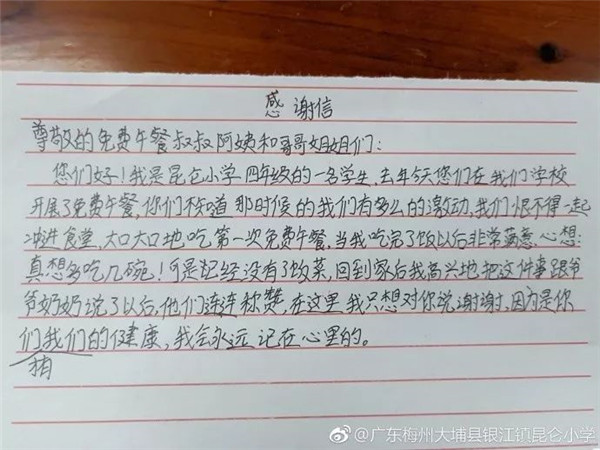 感谢信
尊敬的免费午餐叔叔阿姨和哥哥姐姐们:
您们好!我是昆仑小学四年级的一名学生,去年今天您们在我们学校
开展了免费午餐,你们不知道那时候的我们有多么的激动,我们恨不得一起
冲进食堂,大口大口地吃第一次免费午餐,当我吃完了饭以后非常满意,心想:
真想多吃几碗!可是已经没有了饭菜,回到家后我高兴地把这件事跟爷
爷奶奶说了以后,他们连连称赞,在这里我只想对你说谢谢,因为是你
们我们的健康,我会永远记在心里的。
@广东梅州大埔县银江镇昆仑小学